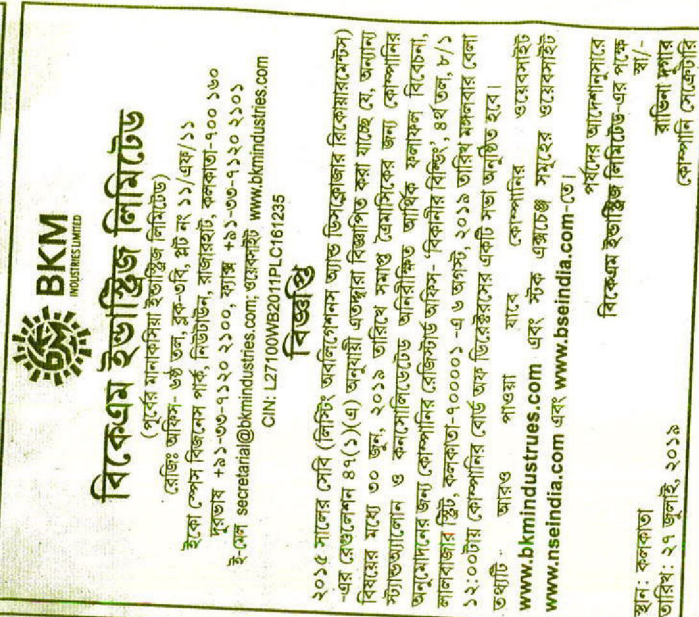 BKM
INDUSTRIES LIMITED
বিকেএম ইন্ডাস্ট্রিজ লিমিটেড
(পূর্বের মানাকসিয়া ইন্ডাস্ট্রিজ লিমিটেড)
রেজিঃ অফিস- ৬ষ্ঠ তল, ব্লক-৩বি, প্লট নং ১১/এফ/১১
ইকো স্পেস বিজনেস পার্ক, নিউটাউন, রাজারহাট, কলকাতা-৭০০ ১৬০
দূরভাষ +৯১-৩৩-৭১২০ ২১০০, ফ্যাক্স +৯১-৩৩-৭১২০ ২১০১
ই-মেল secretarial@bkmindustries.com; ওয়েবসাইট www.bkmindustries.com
CIN: L27100WB2011PLC161235
বিজ্ঞপ্তি
২০১৫ সালের সেবি (লিস্টিং অবলিগেশনস অ্যান্ড ডিসক্লোজার রিকোয়ারমেন্টস)
-এর রেগুলেশন ৪৭(১)(এ) অনুযায়ী এতদ্দ্বারা বিজ্ঞাপিত করা যাচ্ছে যে, অন্যান্য
বিষয়ের মধ্যে ৩০ জুন, ২০১৯ তারিখে সমাপ্ত ত্রৈমাসিকের জন্য কোম্পানির
স্ট্যান্ডঅ্যালোন ও কনসোলিডেটেড অনিরীক্ষিত আর্থিক ফলাফল বিবেচনা,
অনুমোদনের জন্য কোম্পানির রেজিস্টার্ড অফিস- ‘বিকানীর বিল্ডিং’, ৪র্থ তল, ৮/১
লালবাজার স্ট্রিট, কলকাতা-৭০০০০১ -এ ৬ অগস্ট, ২০১৯ তারিখ মঙ্গলবার বেলা
১২:০০টায় কোম্পানির বোর্ড অফ ডিরেক্টরসের একটি সভা অনুষ্ঠিত হবে।
তথ্যটি আরও পাওয়া যাবে কোম্পানির ওয়েবসাইট
www.bkmindustrues.com এবং স্টক এক্সচেঞ্জ সমূহের ওয়েবসাইট
www.nseindia.com এবং www.bseindia.com-তে।
পর্ষদের আদেশানুসারে
বিকেএম ইন্ডাস্ট্রিজ লিমিটেড-এর পক্ষে
স্বা/-
রাভিনা দুগার
কোম্পানি সেক্রেটারি
স্থান: কলকাতা
তারিখ: ২৭ জুলাই, ২০১৯